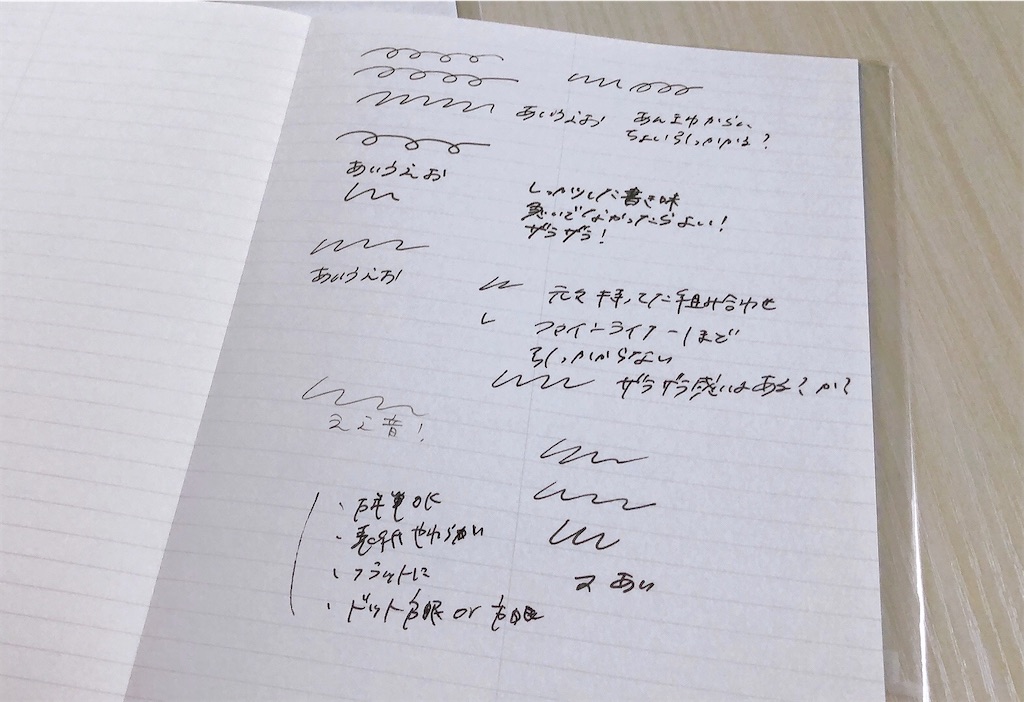 あいうえお
あんまわからん
ちょい引っかかる?
あいうえお
しっかりした書き味
気いでなかったらよい!
ザラザラ!
あいうえお
元々持ってた組み合わせ
ファインライナーまで
引っかからない
ザラザラ感はある?か?
音!
・OK
・表紙やわらかい
・フラットに
・ドット方眼 or 方眼
あい